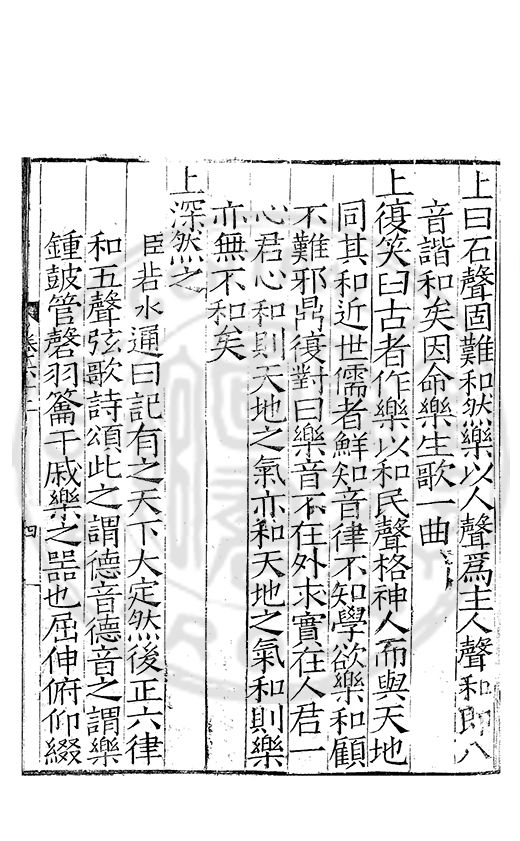 上曰石聲固難和然樂以人聲爲主人聲和即八
音諧和矣因命樂生歌一曲
上復笑曰古者作樂以和民聲格神人而與天地
同其和近世儒者鮮知音律不知學欲樂和顧
不難邪鼎復對曰樂音不在外求實在人君一
心君心和則天地之氣亦和天地之氣和則樂
亦無不和矣
上深然之
臣若水通曰記有之天下大定然後正六律
和五聲弦歌詩頌此之謂德音德音之謂樂
鍾鼓管磬羽籥干戚樂之器也屈伸俯仰綴
卷六十二
四